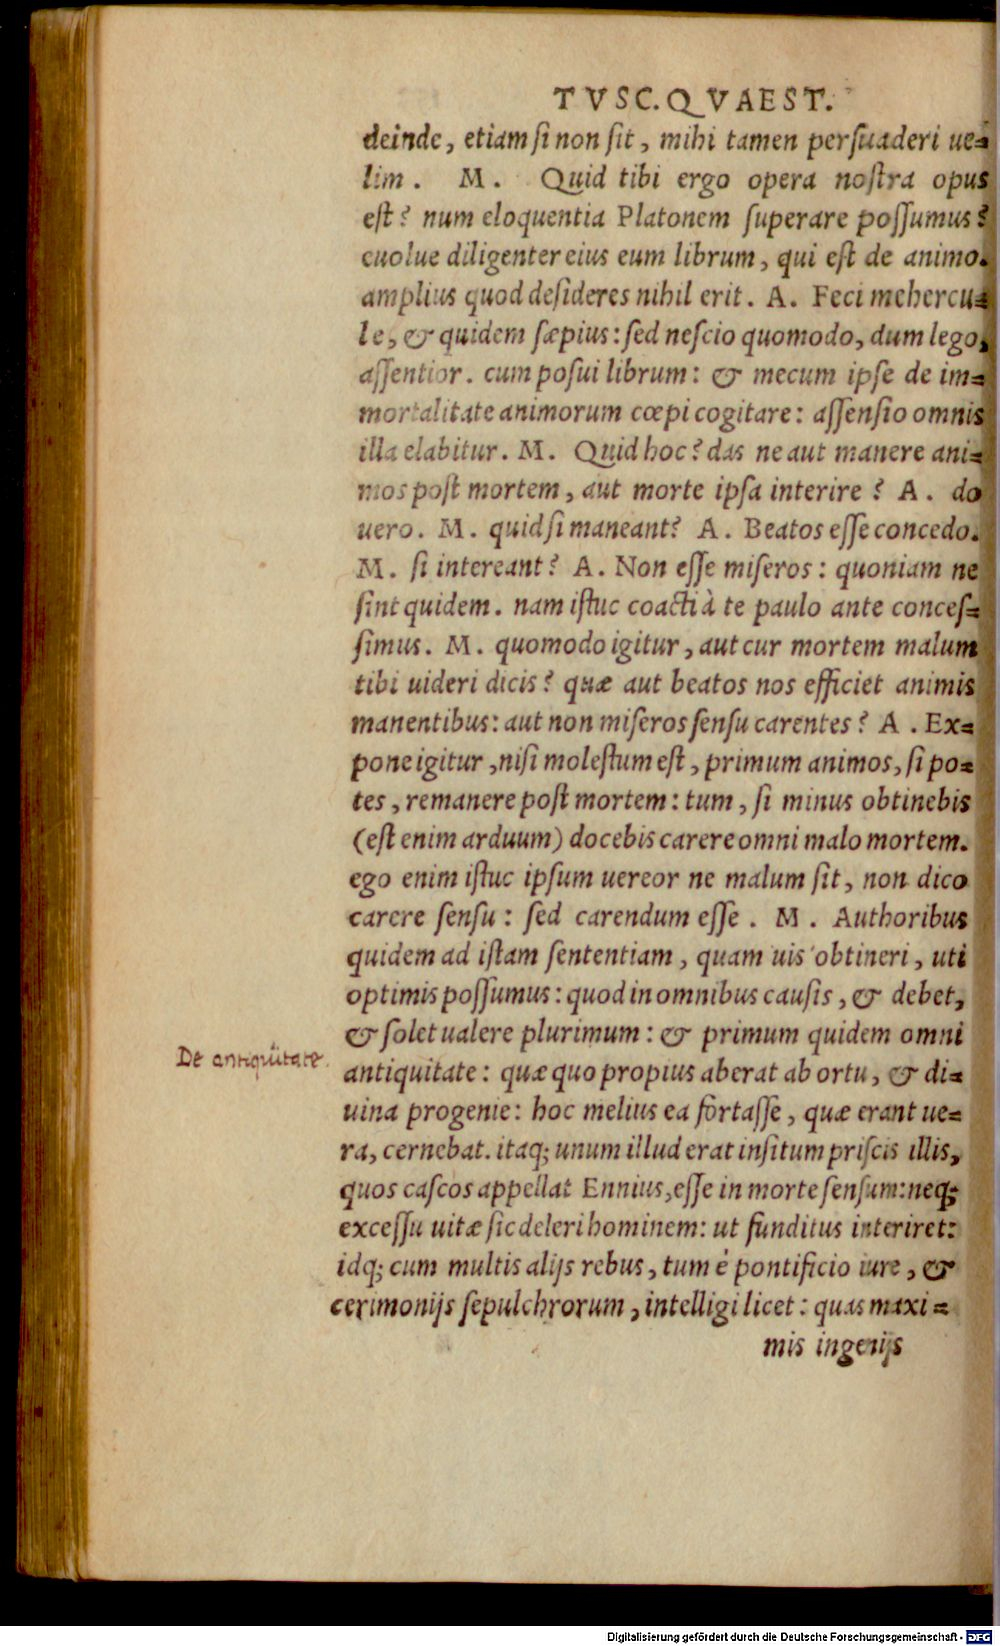 TVSC.QVAEST.
deinde, etiam si non sit, mihi tamen persuaderi ue=
lim. M. Quid tibi ergo opera nostra opus
est? num eloquentia Platonem superare possumus?
euolue diligenter eius eum librum, qui est de animo.
amplius quod desideres nihil erit. A. Feci mehercu=
le, & quidem sæpius: sed nescio quomodo, dum lego,
assentior. cum posui librum: & mecum ipse de im=
mortalitate animorum cœpi cogitare: assensio omnis
illa elabitur. M. Quid hoc? das ne aut manere ani=
mos post mortem, aut morte ipsa interire? A. do
uero. M. quid si maneant? A. Beatos esse concedo.
M. si intereant? A. Non esse miseros: quoniam ne
sint quidem. nam istuc coacti à te paulo ante conces=
simus. M. quomodo igitur, aut cur mortem malum
tibi uideri dicis? quæ aut beatos nos efficiet animis
manentibus: aut non miseros sensu carentes? A. Ex=
pone igitur, nisi molestum est, primum animos, si po=
tes, remanere post mortem: tum, si minus obtinebis
(est enim arduum) docebis carere omni malo mortem.
ego enim istuc ipsum uereor ne malum sit, non dico
carere sensu: sed carendum esse. M. Authoribus
quidem ad istam sententiam, quam uis obtineri, uti
optimis possumus: quod in omnibus causis, & debet,
& solet ualere plurimum: & primum quidem omni
De antiquitate.
antiquitate: quæ quo propius aberat ab ortu, & di=
uina progenie: hoc melius ea fortasse, quæ erant ue=
ra, cernebat. itaq; unum illud erat insitum priscis illis,
quos cascos appellat Ennius, esse in morte sensum: neq;
excessu uitæ sic deleri hominem: ut funditus interiret:
idq; cum multis alijs rebus, tum è pontificio iure, &
cerimonijs sepulchrorum, intelligi licet: quas maxi=
mis ingenijs
Digitalisierung gefördert durch die Deutsche Forschungsgemeinschaft - DFG